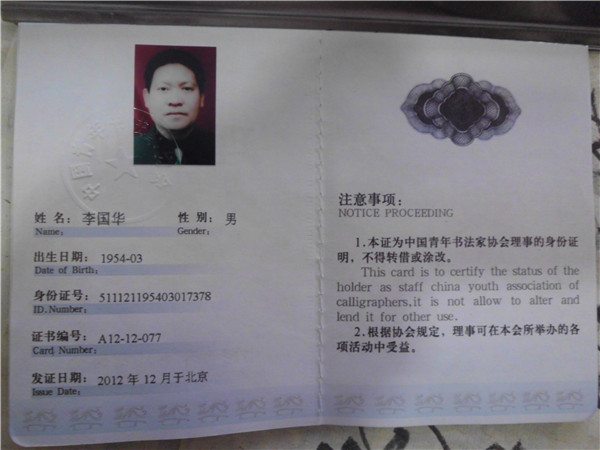 姓 名: 李国华 性 别: 男
Name: Gender:
出生日期: 1954-03
Date of Birth:
身份证号: 511121195403017378
ID.Number:
证书编号: A12-12-077
Card Number:
发证日期: 2012 年 12 月于北京
Issue Date:
注意事项:
NOTICE PROCEEDING
1.本证为中国青年书法家协会理事的身份证
明,不得转借或涂改。
This card is to certify the status of the
holder as staff china youth association of
calligraphers,it is not allow to alter and
lend it for other use.
2.根据协会规定,理事可在本会所举办的各
项活动中受益。